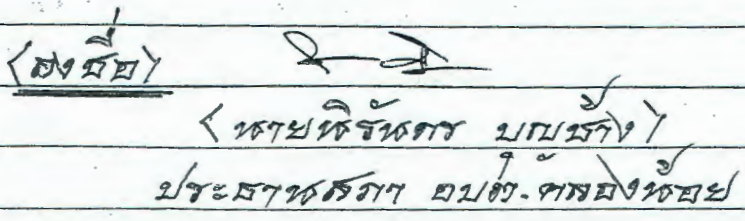 (ลงชื่อ)
(นายพิรันดร บุญช้าง)
ประธานสภา อบต.คลองน้อย